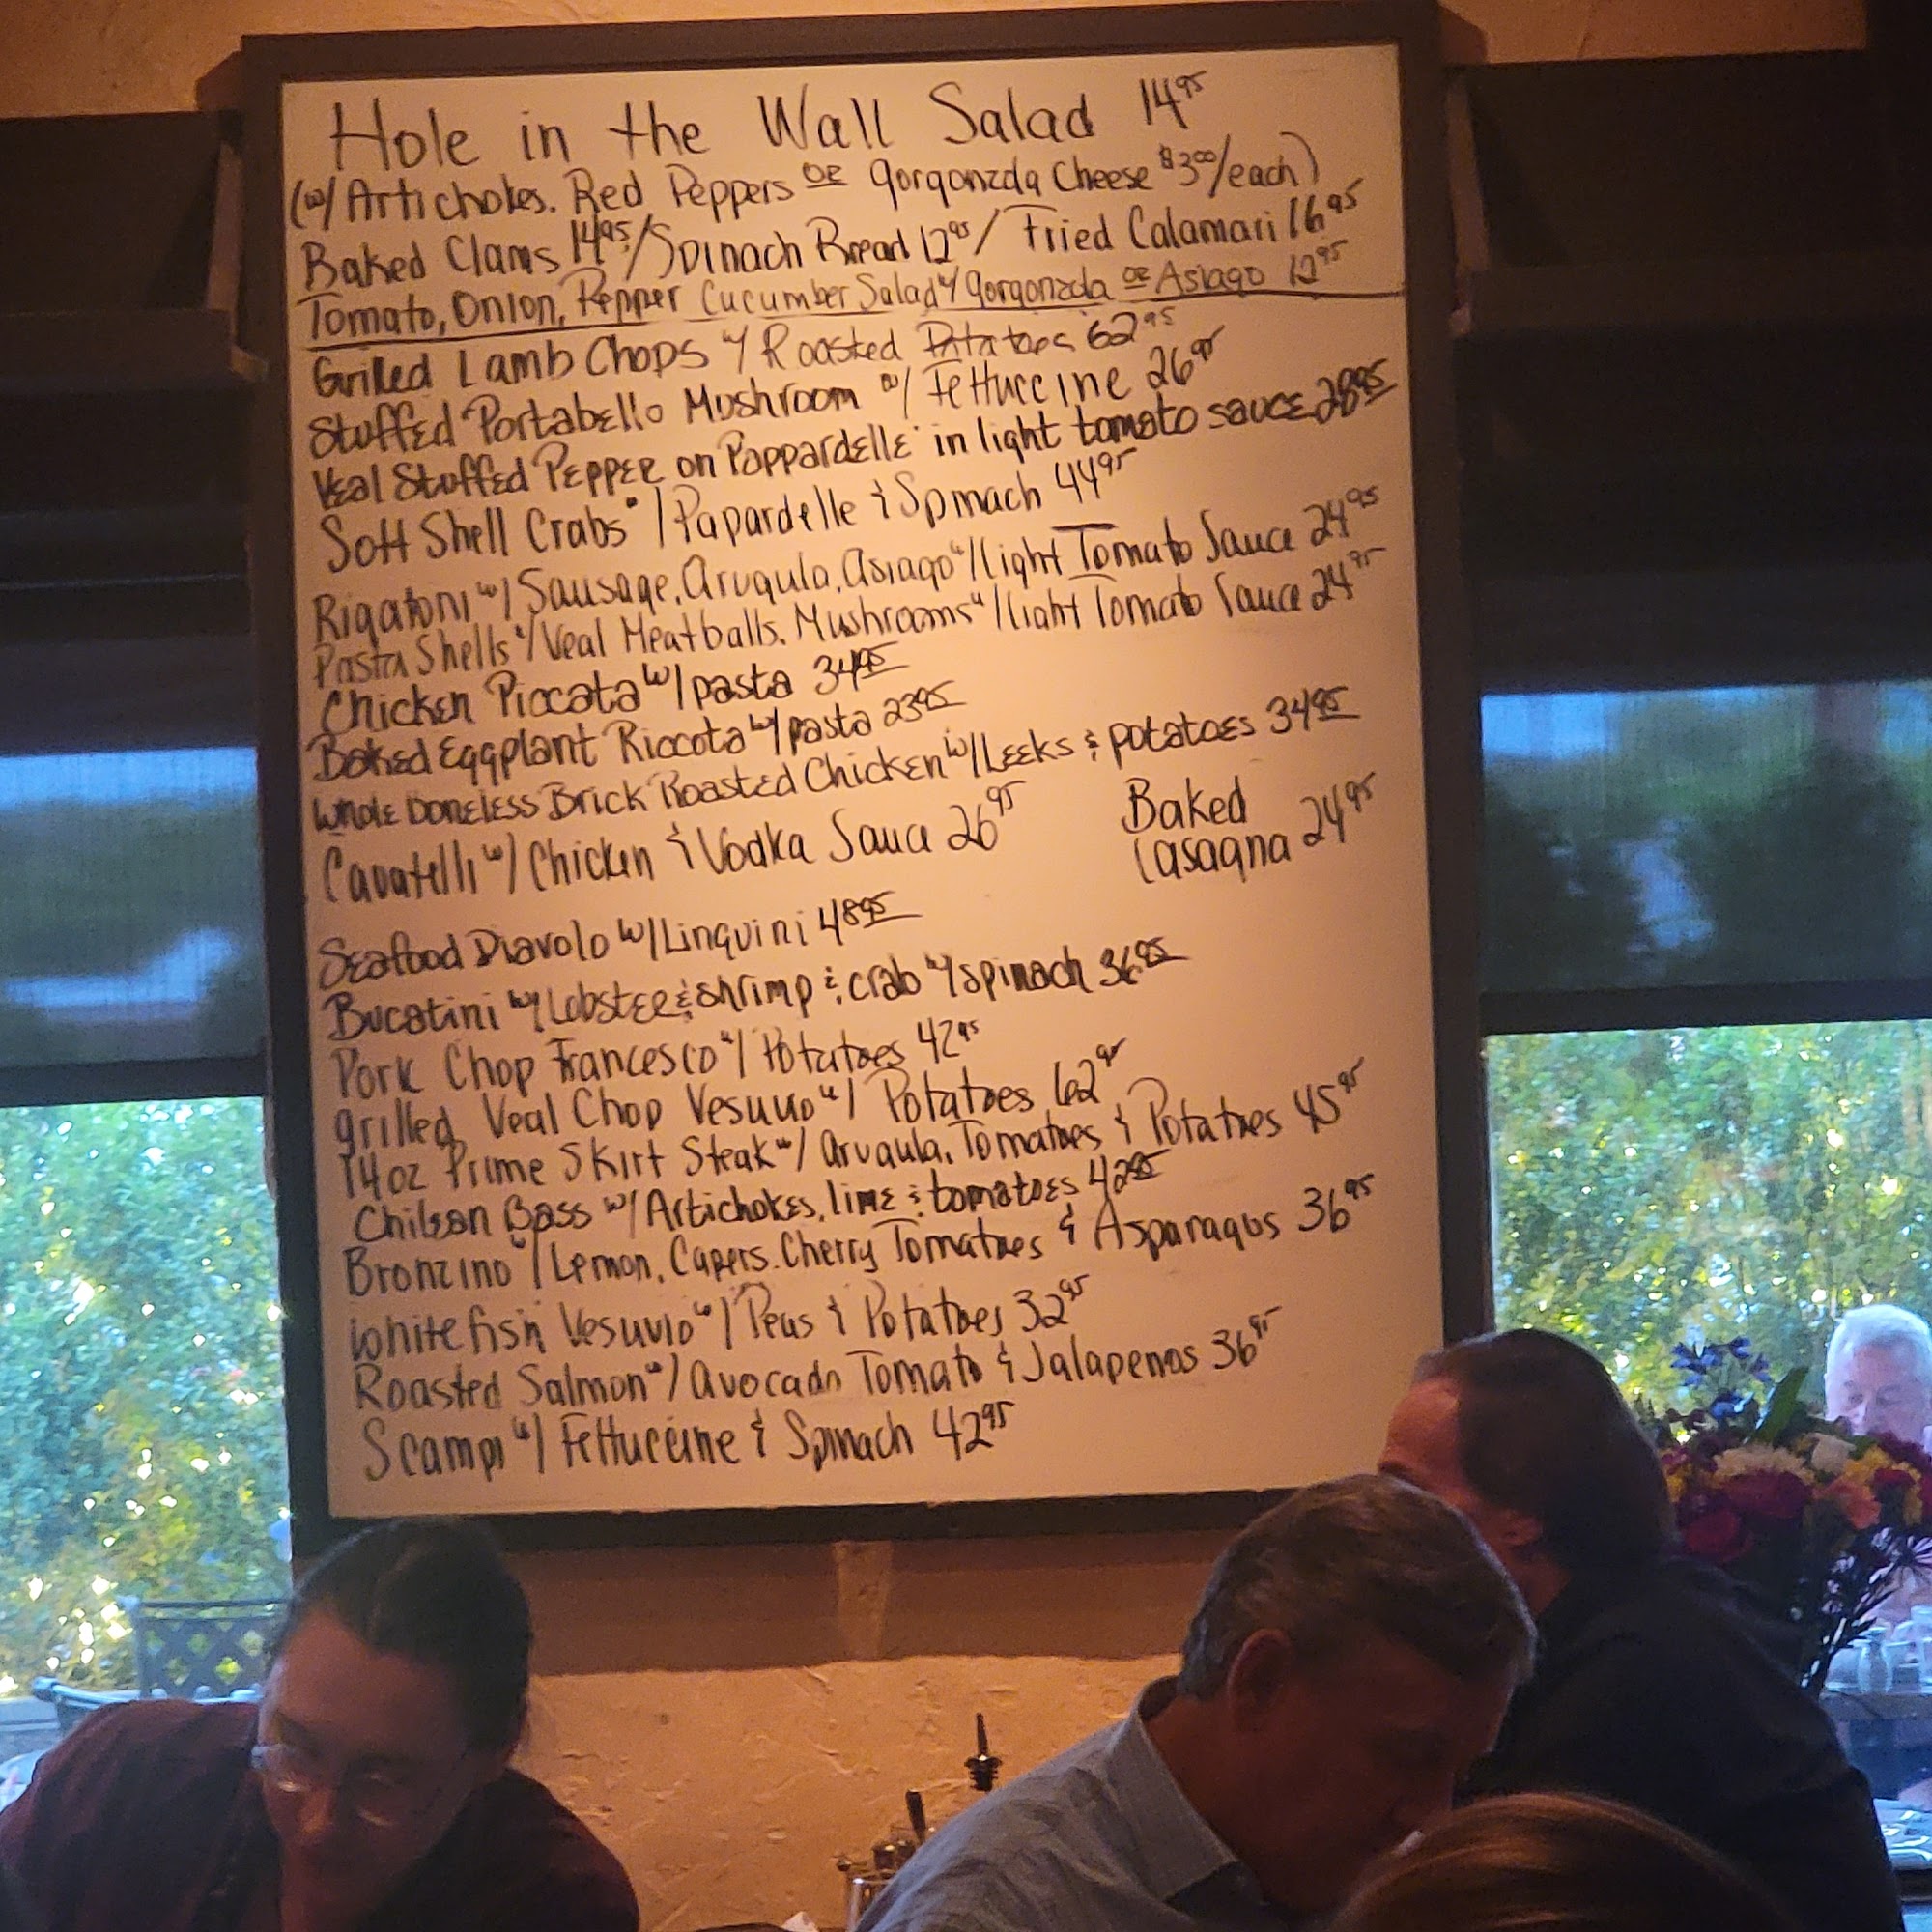 Hole in the Wall Salad 14⁹⁵
(w/ Artichokes. Red Peppers OR gorgonzola Cheese $3⁰⁰/each)
Baked Clams 14⁹⁵/Spinach Bread 12⁹⁵/ Fried Calamari 16⁹⁵
Tomato, Onion, Pepper Cucumber Salad w/ gorgonzola OR Asiago 12⁹⁵
Grilled Lamb Chops w/ Roasted Potatoes 62⁹⁵
Stuffed Portabello Mushroom w/ Fettuccine 26⁹⁵
Veal Stuffed Pepper on Pappardelle in light tomato sauce 28⁹⁵
Soft Shell Crabs w/ Papardelle & Spinach 44⁹⁵
Rigatoni w/ Sausage, Arugula, Asiago w/ Light Tomato Sauce 24⁹⁵
Pasta Shells w/ Veal Meatballs, Mushrooms w/ light Tomato Sauce 24⁹⁵
Chicken Piccata w/ pasta 34⁹⁵
Baked Eggplant Riccota w/ pasta 23⁹⁵
Whole Boneless Brick Roasted Chicken w/ Leeks & potatoes 34⁹⁵
Cavatelli w/ Chicken & Vodka Sauce 26⁹⁵
Baked
Lasagna 24⁹⁵
Seafood Diavolo w/ Linguini 48⁹⁵
Bucatini w/ Lobster & shrimp & crab w/ spinach 36⁹⁵
Pork Chop Francesco w/ Potatoes 42⁹⁵
grilled Veal Chop Vesuvio w/ Potatoes 62⁹⁵
14oz Prime Skirt Steak w/ Arugula, Tomatoes & Potatoes 45⁹⁵
Chilean Bass w/ Artichokes, lime & tomatoes 42⁹⁵
Bronzino w/ Lemon, Capers, Cherry Tomatoes & Asparagus 36⁹⁵
Whitefish Vesuvio w/ Peas & Potatoes 32⁹⁵
Roasted Salmon w/ Avocado Tomato & Jalapenos 36⁹⁵
Scampi w/ Fettuccine & Spinach 42⁹⁵